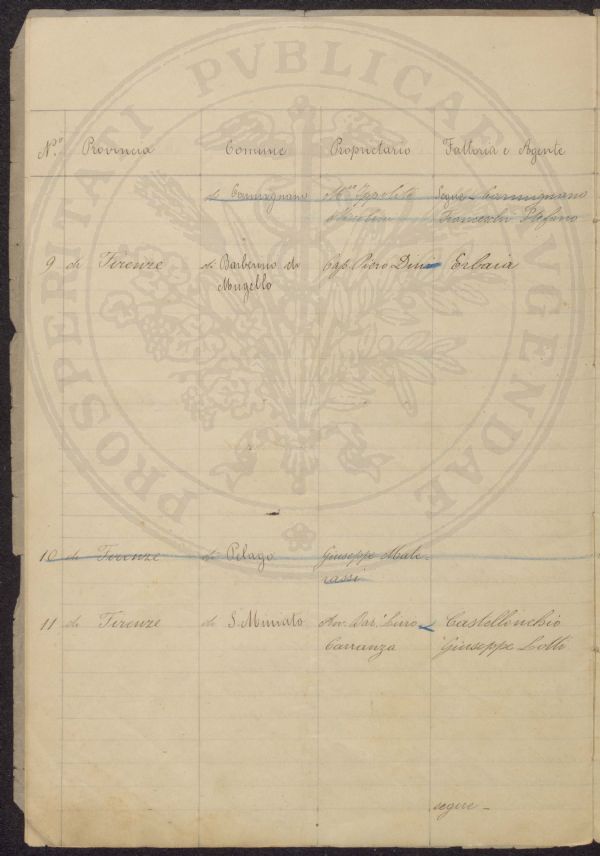 PROSPERITATI PVBLICAE AVGENDAE
N.º Provincia Comune Proprietario Fattoria e Agente
di Carmignano M.se Ippolito Segue - Carmignano
Niccolini Franceschi Stefano
9 di Firenze di Barberino di Cap. Piero Dini Erbaia
Mugello
10 di Firenze di Pelago Giuseppe Male-
rassi
11 di Firenze di S. Miniato Av. Bar. Ciro Castellinchio
Carranza Giuseppe Lotti
segue -